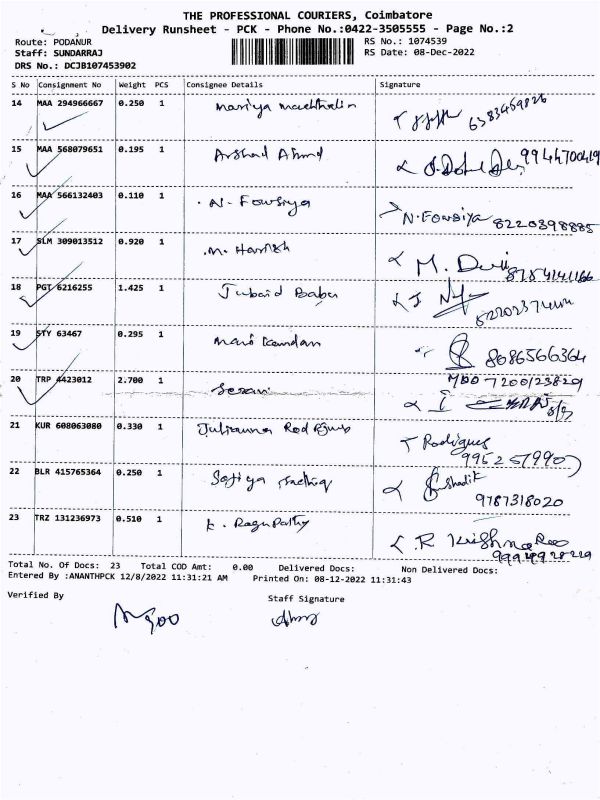 THE PROFESSIONAL COURIERS, Coimbatore
Delivery Runsheet - PCK - Phone No.:0422-3505555 - Page No.:2
Route: PODANUR
RS No.: 1074539
Staff: SUNDARRAJ
RS Date: 08-Dec-2022
DRS No.: DCJB107453902
S No Consignment No Weight PCS Consignee Details Signature
14 MAA 294966667 0.250 1 Mariya 6383459826
15 MAA 568079651 0.195 1 Arshad Ahmd 9944700419
16 MAA 566132403 0.110 1 N. Fowsiya N. Fowsiya 8220398885
17 SLM 309013512 0.920 1 M. Harrish M. Devi 8754141166
18 PGT 6216255 1.425 1 Jubaid Babu
19 STY 63467 0.295 1 Mani kandan 8086566364
20 TRP 4423012 2.700 1 7200123829
21 KUR 608063080 0.330 1 Julianna Rodrigues
22 BLR 415765364 0.250 1 Safiya 9787318020
23 TRZ 131236973 0.510 1 K. Ragupathy R Krishna Rao
Total No. Of Docs: 23 Total COD Amt: 0.00 Delivered Docs: Non Delivered Docs:
Entered By :ANANTHPCK 12/8/2022 11:31:21 AM Printed On: 08-12-2022 11:31:43
Verified By Staff Signature